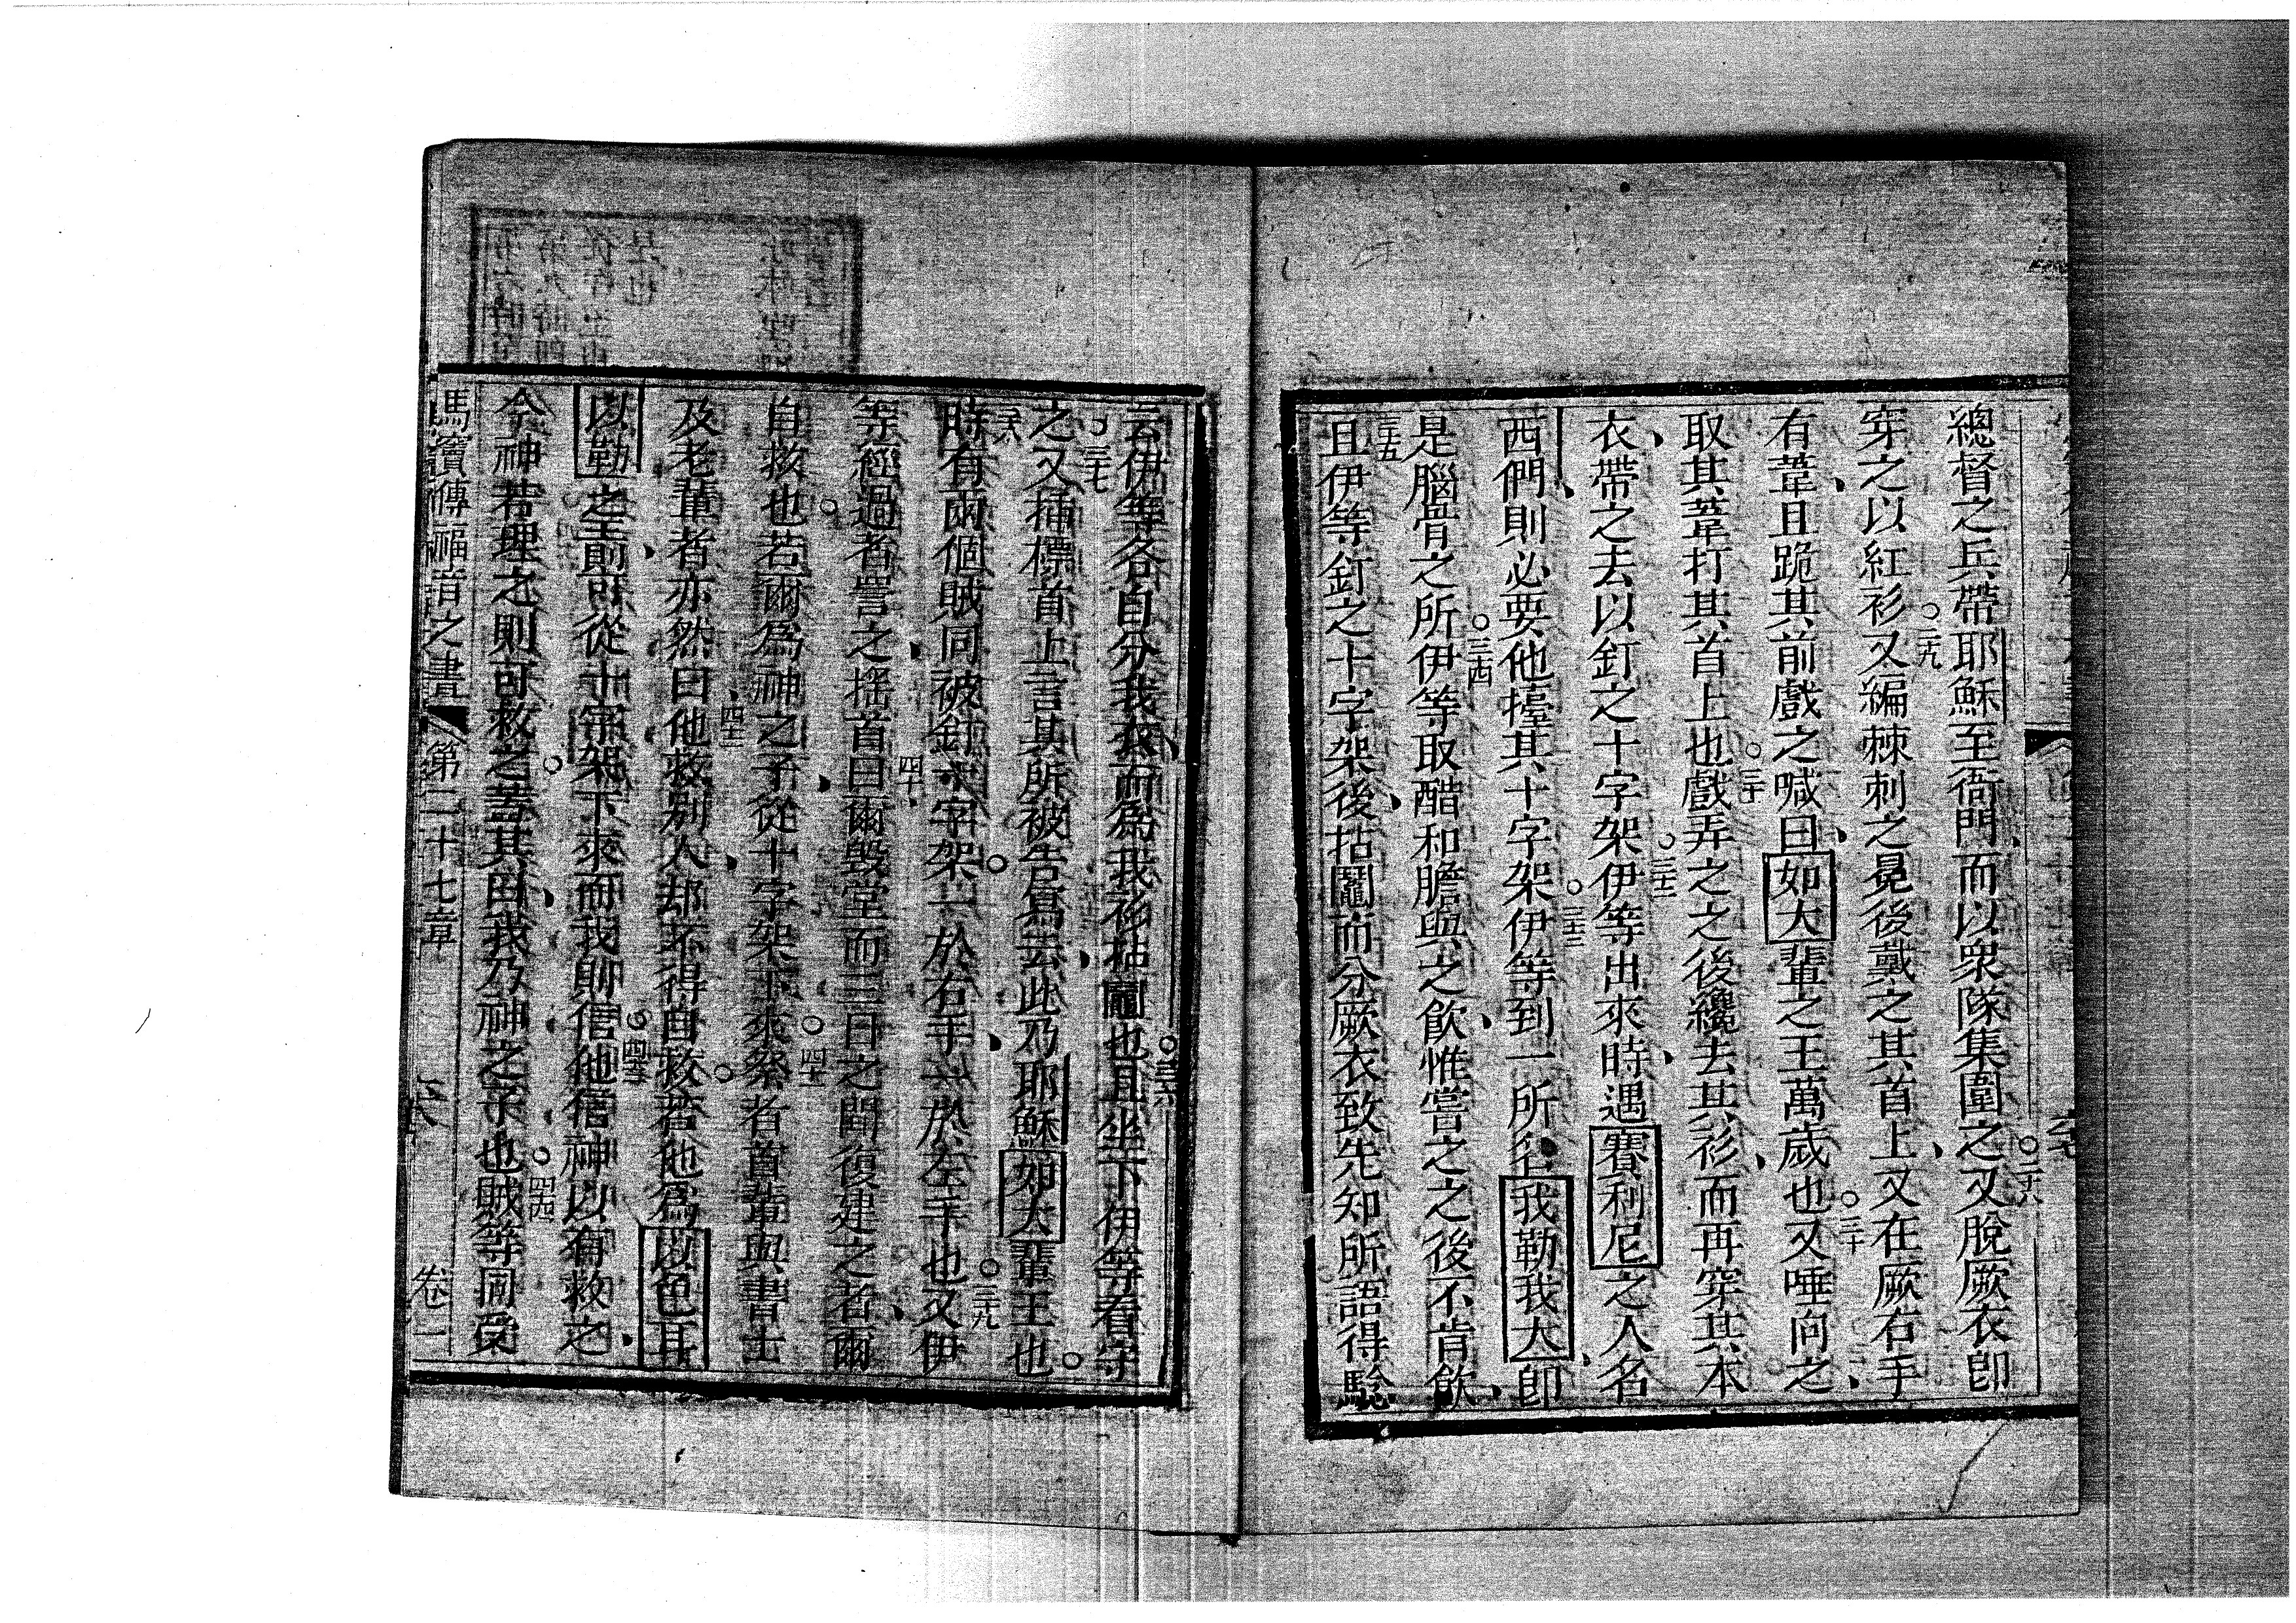 總督之兵帶耶穌至衙門、而以衆隊集圍之○二十八又脫厥衣卽
穿之以紅衫○二十九又編棘刺之冕後戴之其首上、又在厥右手
有葦、且跪其前戲之喊曰、如大輩之王萬歲也○三十又唾向之、
取其葦打其首上也○三十一戲弄之之後纔去其衫、而再穿其本
衣、帶之去以釘之十字架○三十二伊等出來時、遇賽利尼之人名
西們、則必要他擡其十字架○三十三伊等到一所名我勒我大、卽
是腦骨之所○三十四伊等取醋和膽與之飲、惟嘗之之後不肯飲、
三十五且伊等釘之十字架後、拈鬮而分厥衣致先知所語得騐
云伊等各自分我衣、而爲我衫拈鬮也○三十六且坐下伊等看守
之○三十七又插標首上言其所被告寫云、此乃耶穌如大輩王也○
三十八時有兩個賊同被釘十字架○一於右手、一於左手也○三十九又伊
等經過者詈之、搖首四十曰爾毀堂而三日之間復建之者、爾
自救也○若爾爲神之子、從十字架下來○四十一祭者首輩與書士
及老輩者亦然曰、四十二他救別人、却不得自救○若他爲以色耳
以勒之王、則可從十字架下來而我則信他○四十三他信神以有救之、
今神若理之則可救之○蓋其曰、我乃神之子也○四十四賊等同受
馬竇傳福音之書 第二十七章 卷一